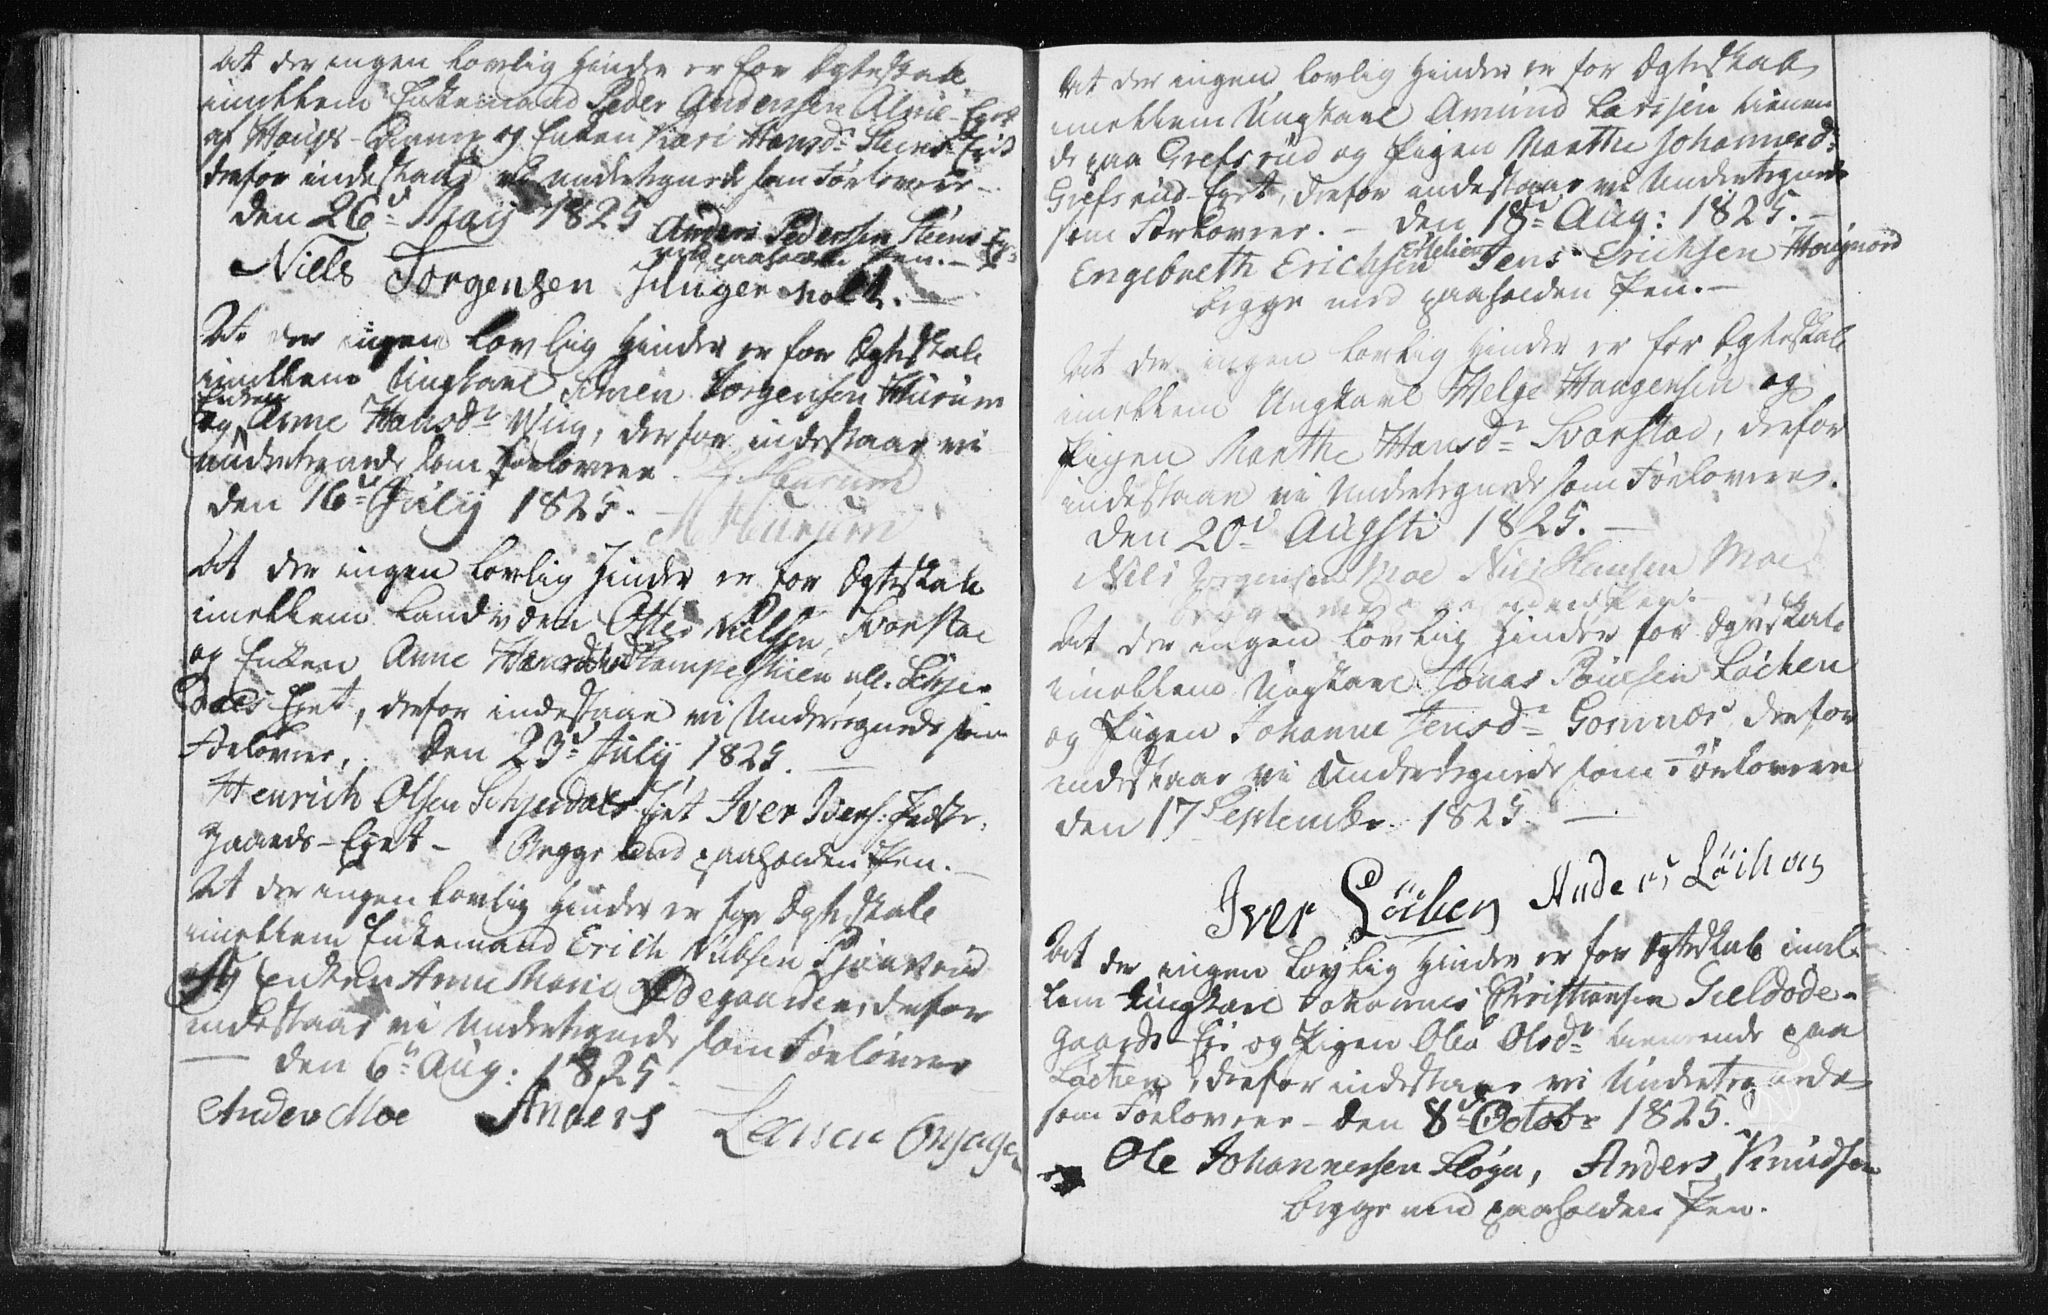 At der ingen lovlig Hinder er for Ægteskab
imellem Enkemand Peder Anderssen Alme-Eyet
og Enken Kari Hansd: Steins Eyet
derfor indestaae vi undertegnede som Forlovere –
den 26d May 1825
Anders Pedersen Steins Ey:
med paaholden Pen. –
Niels Torgensen
At der ingen lovlig Hinder er for Ægteskab
imellem Ungkarl Simen Torgensen Hurum
Enken
og Anne Hansdr Wiig, derfor indestaar vi
undertegnede som Forlovere. – Hurum
den 16d July 1825. –
Hurum
At der ingen lovlig Hinder er for Ægteskab
imellem Landvden Otter Nielsen Svarstad
og Enken Anne
Dals Eyet, derfor indestaae vi Undertegnede som
Forlovere, den 23d July 1825. –
Henrich Olsen Schjerdals Eyet Iver Iversen
gaards-Eyet – Begge med paaholden Pen. –
At der ingen lovlig Hinder er for Ægteskab
imellem Enkemand Erich Nilsen
og Enken Anne Maria Ødegaarden, derfor
indestaar vi Undertegnede som Forlovere
– den 6te Aug: 1825 –
Anders Moe Anders Larsen
At der ingen lovlig Hinder er for Ægteskab
imellem Ungkarl Amund Larssen tienen
de paa Grefsrud og Pigen Marthe Johannesd:
Grefsrud-Eyet, derfor indestaar vi Undertegnede
som Forlovere. – den 18d Aug: 1825. –
Engebreth Erichsen Jens Erichsen
begge med paaholden Pen. –
At der ingen lovlig Hinder er for Ægteskab
imellem Ungkarl Helge Haagensen og
Pigen Marthe Hansdr Svarstad, derfor
indestaar vi Undertegnede som Forlovere.
den 20d Augsti 1825. –
Niels Jørgensen Moe Niels Hansen Moe
begge med paaholden Pen.
At der ingen lovlig Hinder for Ægteskab
imellem Ungkarl Jonas Poulsen Løchen
og Pigen Johanne Jensdr derfor
indestaar vi Undertegnede som Forlovere
den 17 Septembr. 1825. –
Iver Löchen Anders Löchen
At der ingen lovlig Hinder er for Ægteskab imel-
lem Ungkarl Johannes Christiansen Sieldøde-
gaards-Ey: og Pigen Olea Olsdr tienende paa
Løchen, derfor indestaar vi Undertegnede
som Forlovere – den 8d Octobr 1825. –
Ole Johannessen Anders Knudsen
begge med paaholden Pen.